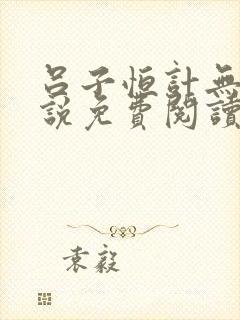 呂子恒計無
說免費閱讀
袁毅